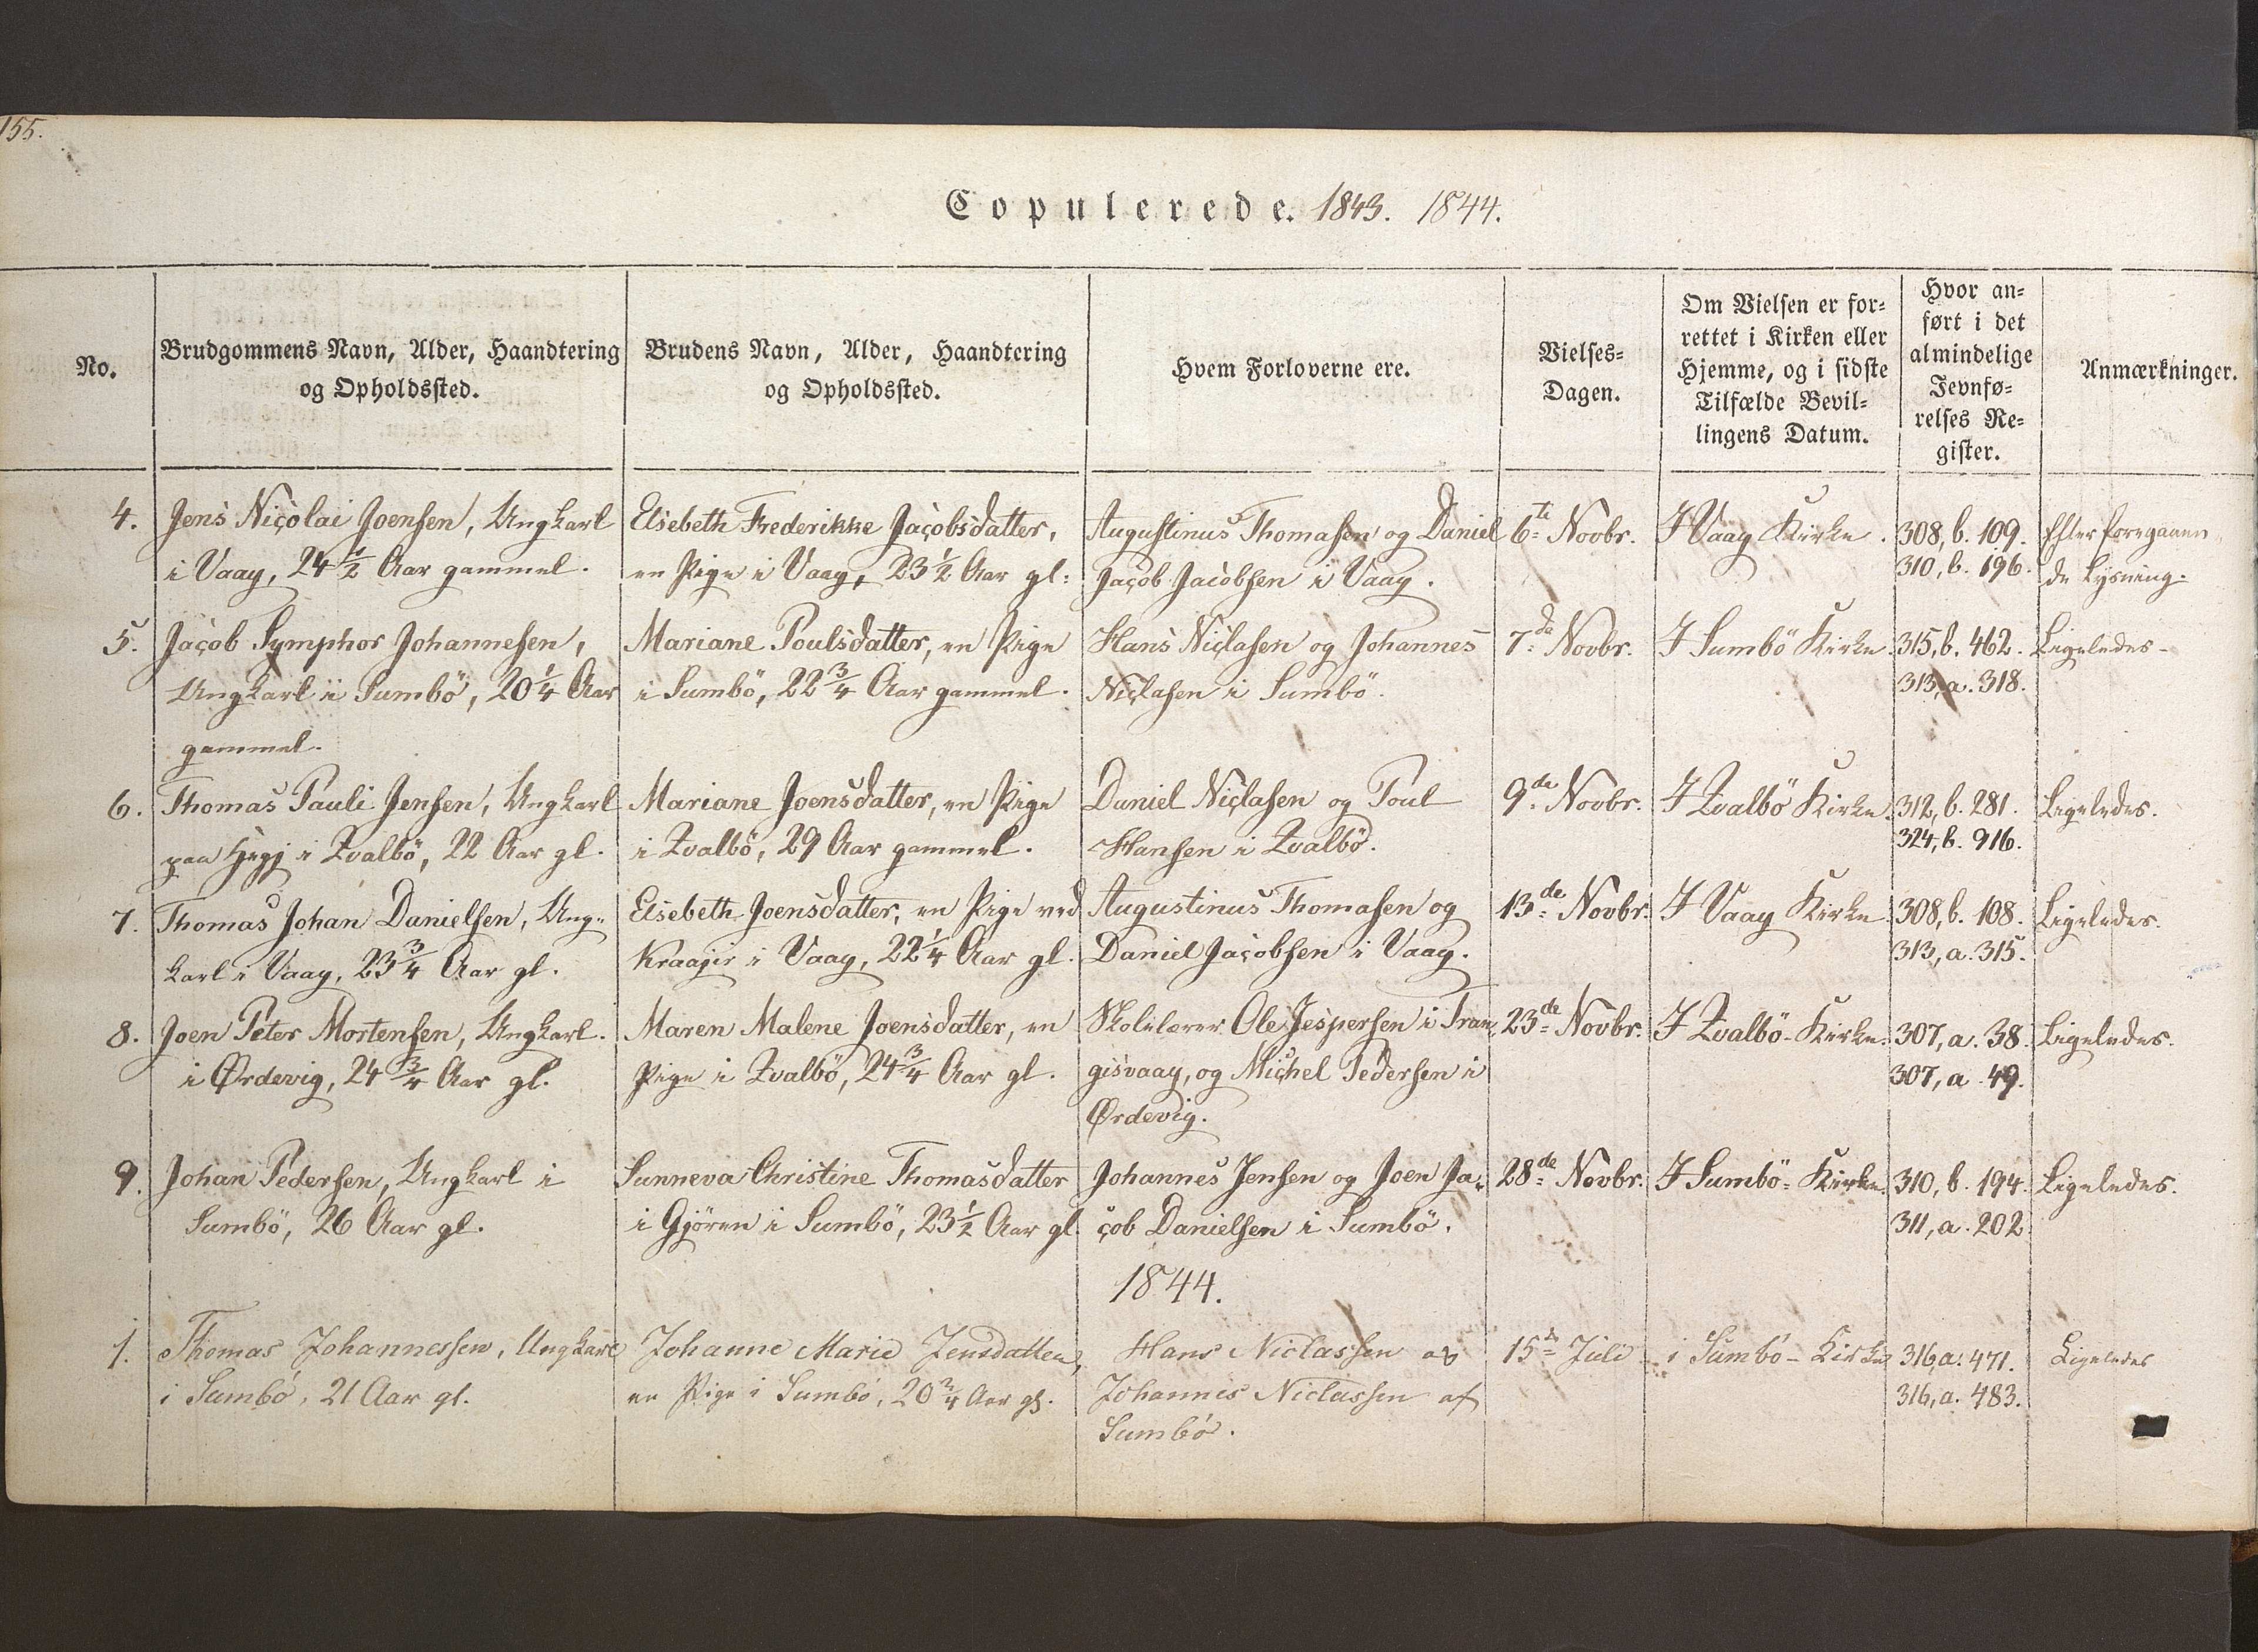 155.
Copulerede. 1843. 1844.
No.
Brudgommens Navn, Alder, Haandtering
og Opholdssted.
Brudens Navn, Alder, Haandtering
og Opholdssted.
Hvem Forloverne ere.
Vielses-
Dagen.
Om Vielsen er for-
rettet i Kirken eller
Hjemme, og i sidste
Tilfælde Bevil-
lingens Datum.
Hvor an-
ført i det
almindelige
Jevnfø-
relses Re-
gister.
Anmærkninger.
4.
Jens Nicolai Joensen, Ungkarl
i Vaag, 24 1/2 Aar gammel.
Elsebeth Frederikke Jacobsdatter,
en Pige i Vaag, 23 1/2 Aar gl:
Augustinus Thomasen og Daniel
Jacob Jacobsen i Vaag.
6te Novbr.
I Vaag Kirke.
308, b. 109.
310, b. 196.
Efter foregaaen
de Lysning.
5.
Jacob Symphor Johannesen,
Ungkarl i Sumbö, 20 1/4 Aar
gammel.
Mariane Poulsdatter, en Pige
i Sumbö, 22 3/4 Aar gammel.
Hans Niclasen og Johannes
Niclasen i Sumbö.
7de Novbr.
I Sumbö Kirke.
315, b. 462.
313, a. 318.
Ligeledes.
6.
Thomas Pauli Jensen, Ungkarl
paa i Qvalbö, 22 Aar gl.
Mariane Joensdatter, en Pige
i Qvalbö, 29 Aar gammel.
Daniel Niclasen og Poul
Hansen i Qvalbö.
9de Novbr.
I Qvalbö Kirke.
312, b. 281.
324, b. 916.
Ligeledes.
7.
Thomas Johan Danielsen, Ung-
karl i Vaag, 23 3/4 Aar gl.
Elsebeth Joensdatter, en Pige ved
Kraagir i Vaag, 22 1/4 Aar gl.
Augustinus Thomasen og
Daniel Jacobsen i Vaag.
13de Novbr.
I Vaag Kirke
308, b. 108.
313, a. 315.
Ligeledes.
8.
Joen Peter Mortensen, Ungkarl.
i Ørdevig, 24 3/4 Aar gl.
Maren Malene Joensdatter, en
Pige i Qvalbö, 24 3/4 Aar gl.
Skolelærer Ole Jespersen i Tran-
gisvaag, og Michel Pedersen i
Ørdevig.
23de Novbr.
I Qvalbö-Kirke.
307, a. 38.
307, a. 49.
Ligeledes.
9.
Johan Pedersen, Ungkarl i
Sumbö, 26 Aar gl.
Sunneva Christine Thomasdatter
i Gjören i Sumbö, 23 1/2 Aar gl.
Johannes Jensen og Joen Ja-
cob Danielsen i Sumbö.
28de Novbr.
I Sumbö-Kirke.
310, b. 194.
311, a. 202.
Ligeledes.
1844.
1.
Thomas Johannessen, Ungkarl
i Sumbö, 21 Aar gl.
Johanne Marie Jensdatter,
en Pige i Sumbö, 20 3/4 Aar gl.
Hans Niclassen og
Johannes Niclassen af
Sumbö.
15de Juli
i Sumbö-Kirke
316, a. 471.
316, a. 483.
Ligeledes